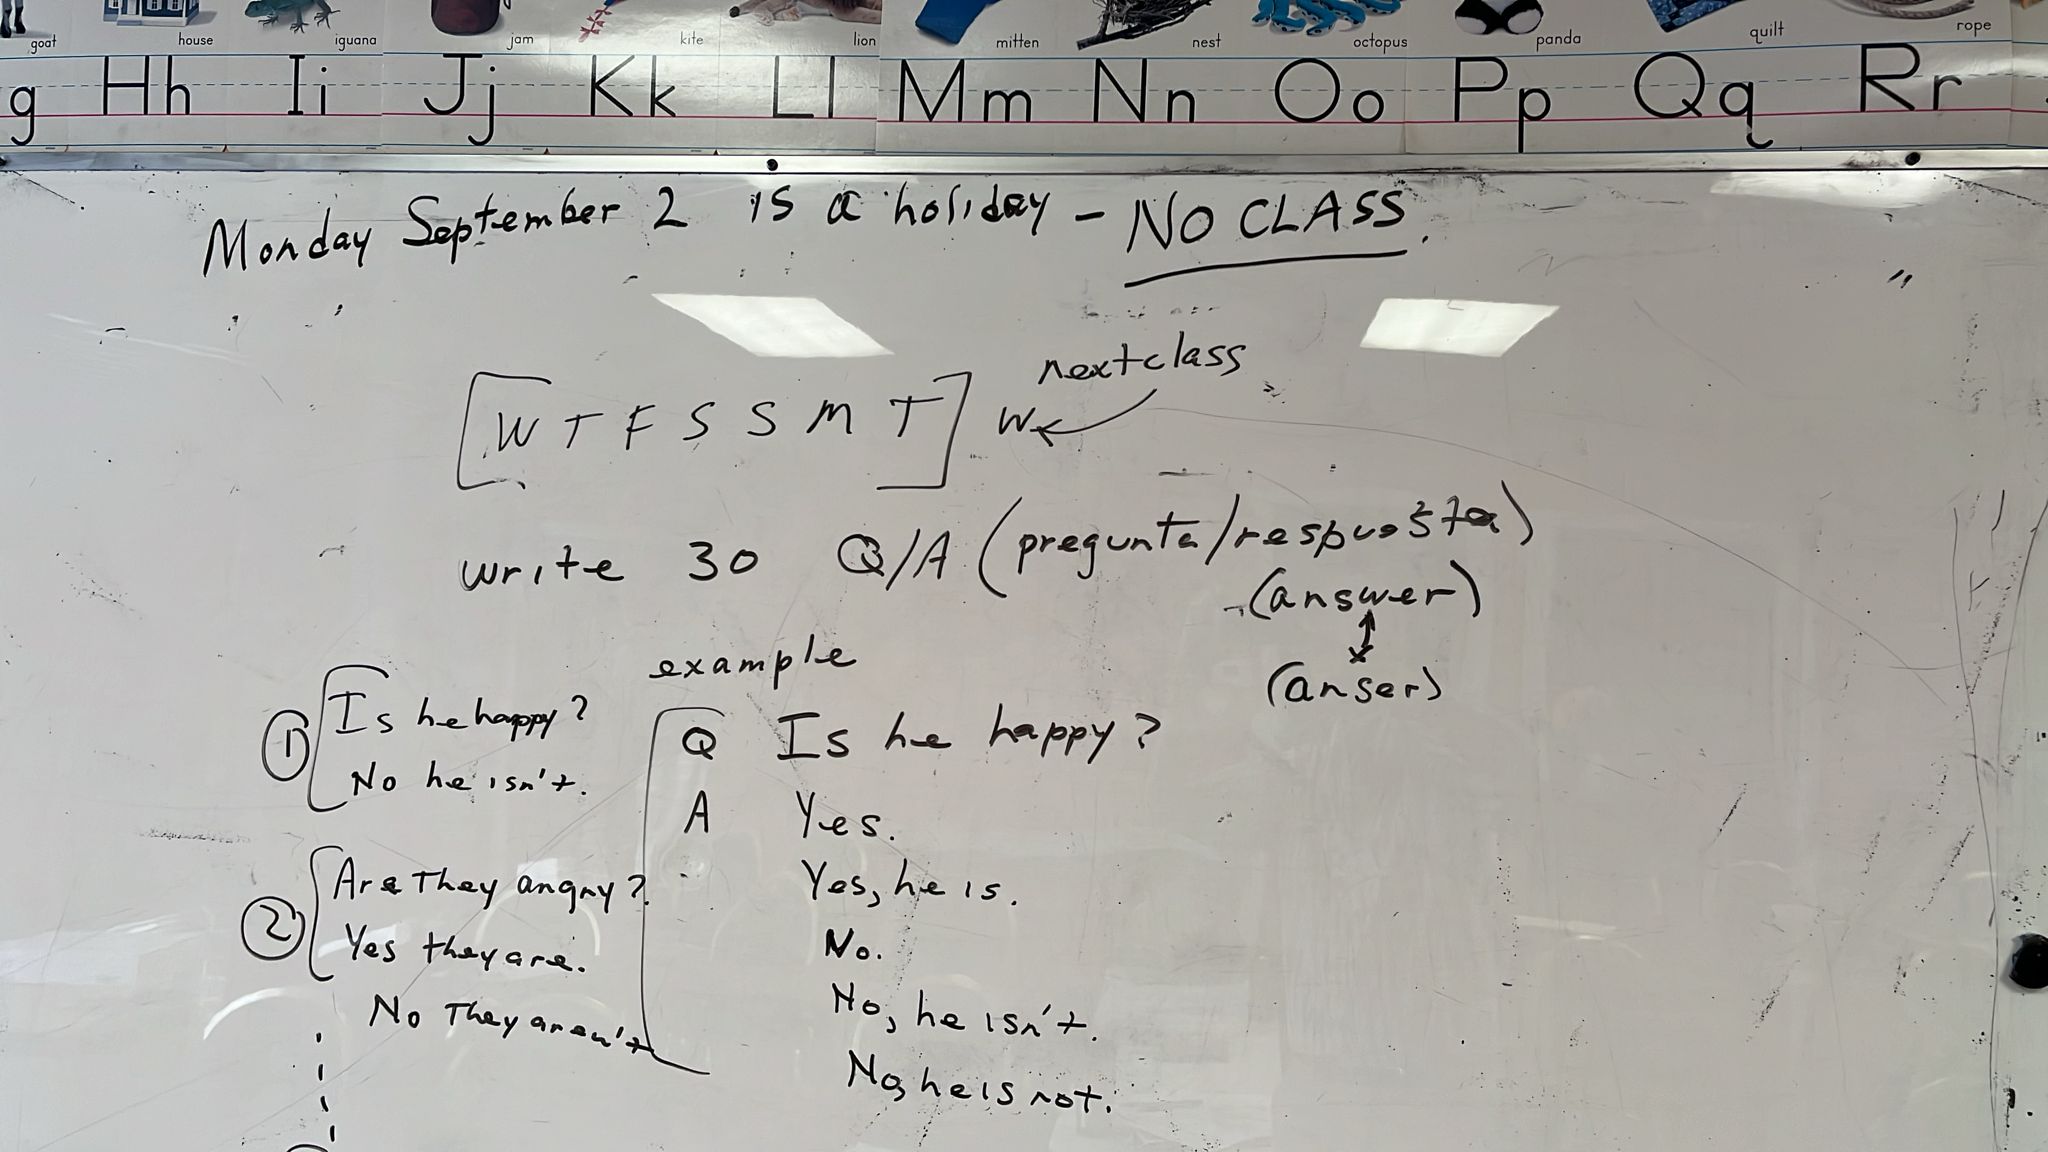 goat house iguana jam kite lion mitten nest octopus panda quilt rope
g Hh Ii Jj Kk Ll Mm Nn Oo Pp Qq Rr
Monday September 2 is a holiday - NO CLASS.
next class
[W T F S S M T] W
write 30 Q/A (pregunta/respuesta)
(answer)
(anser)
example
1 Is he happy?
No he isn't.
2 Are They angry?
Yes they are.
No They aren't
Q Is he happy?
A Yes.
Yes, he is.
No.
No, he isn't.
No, he is not.